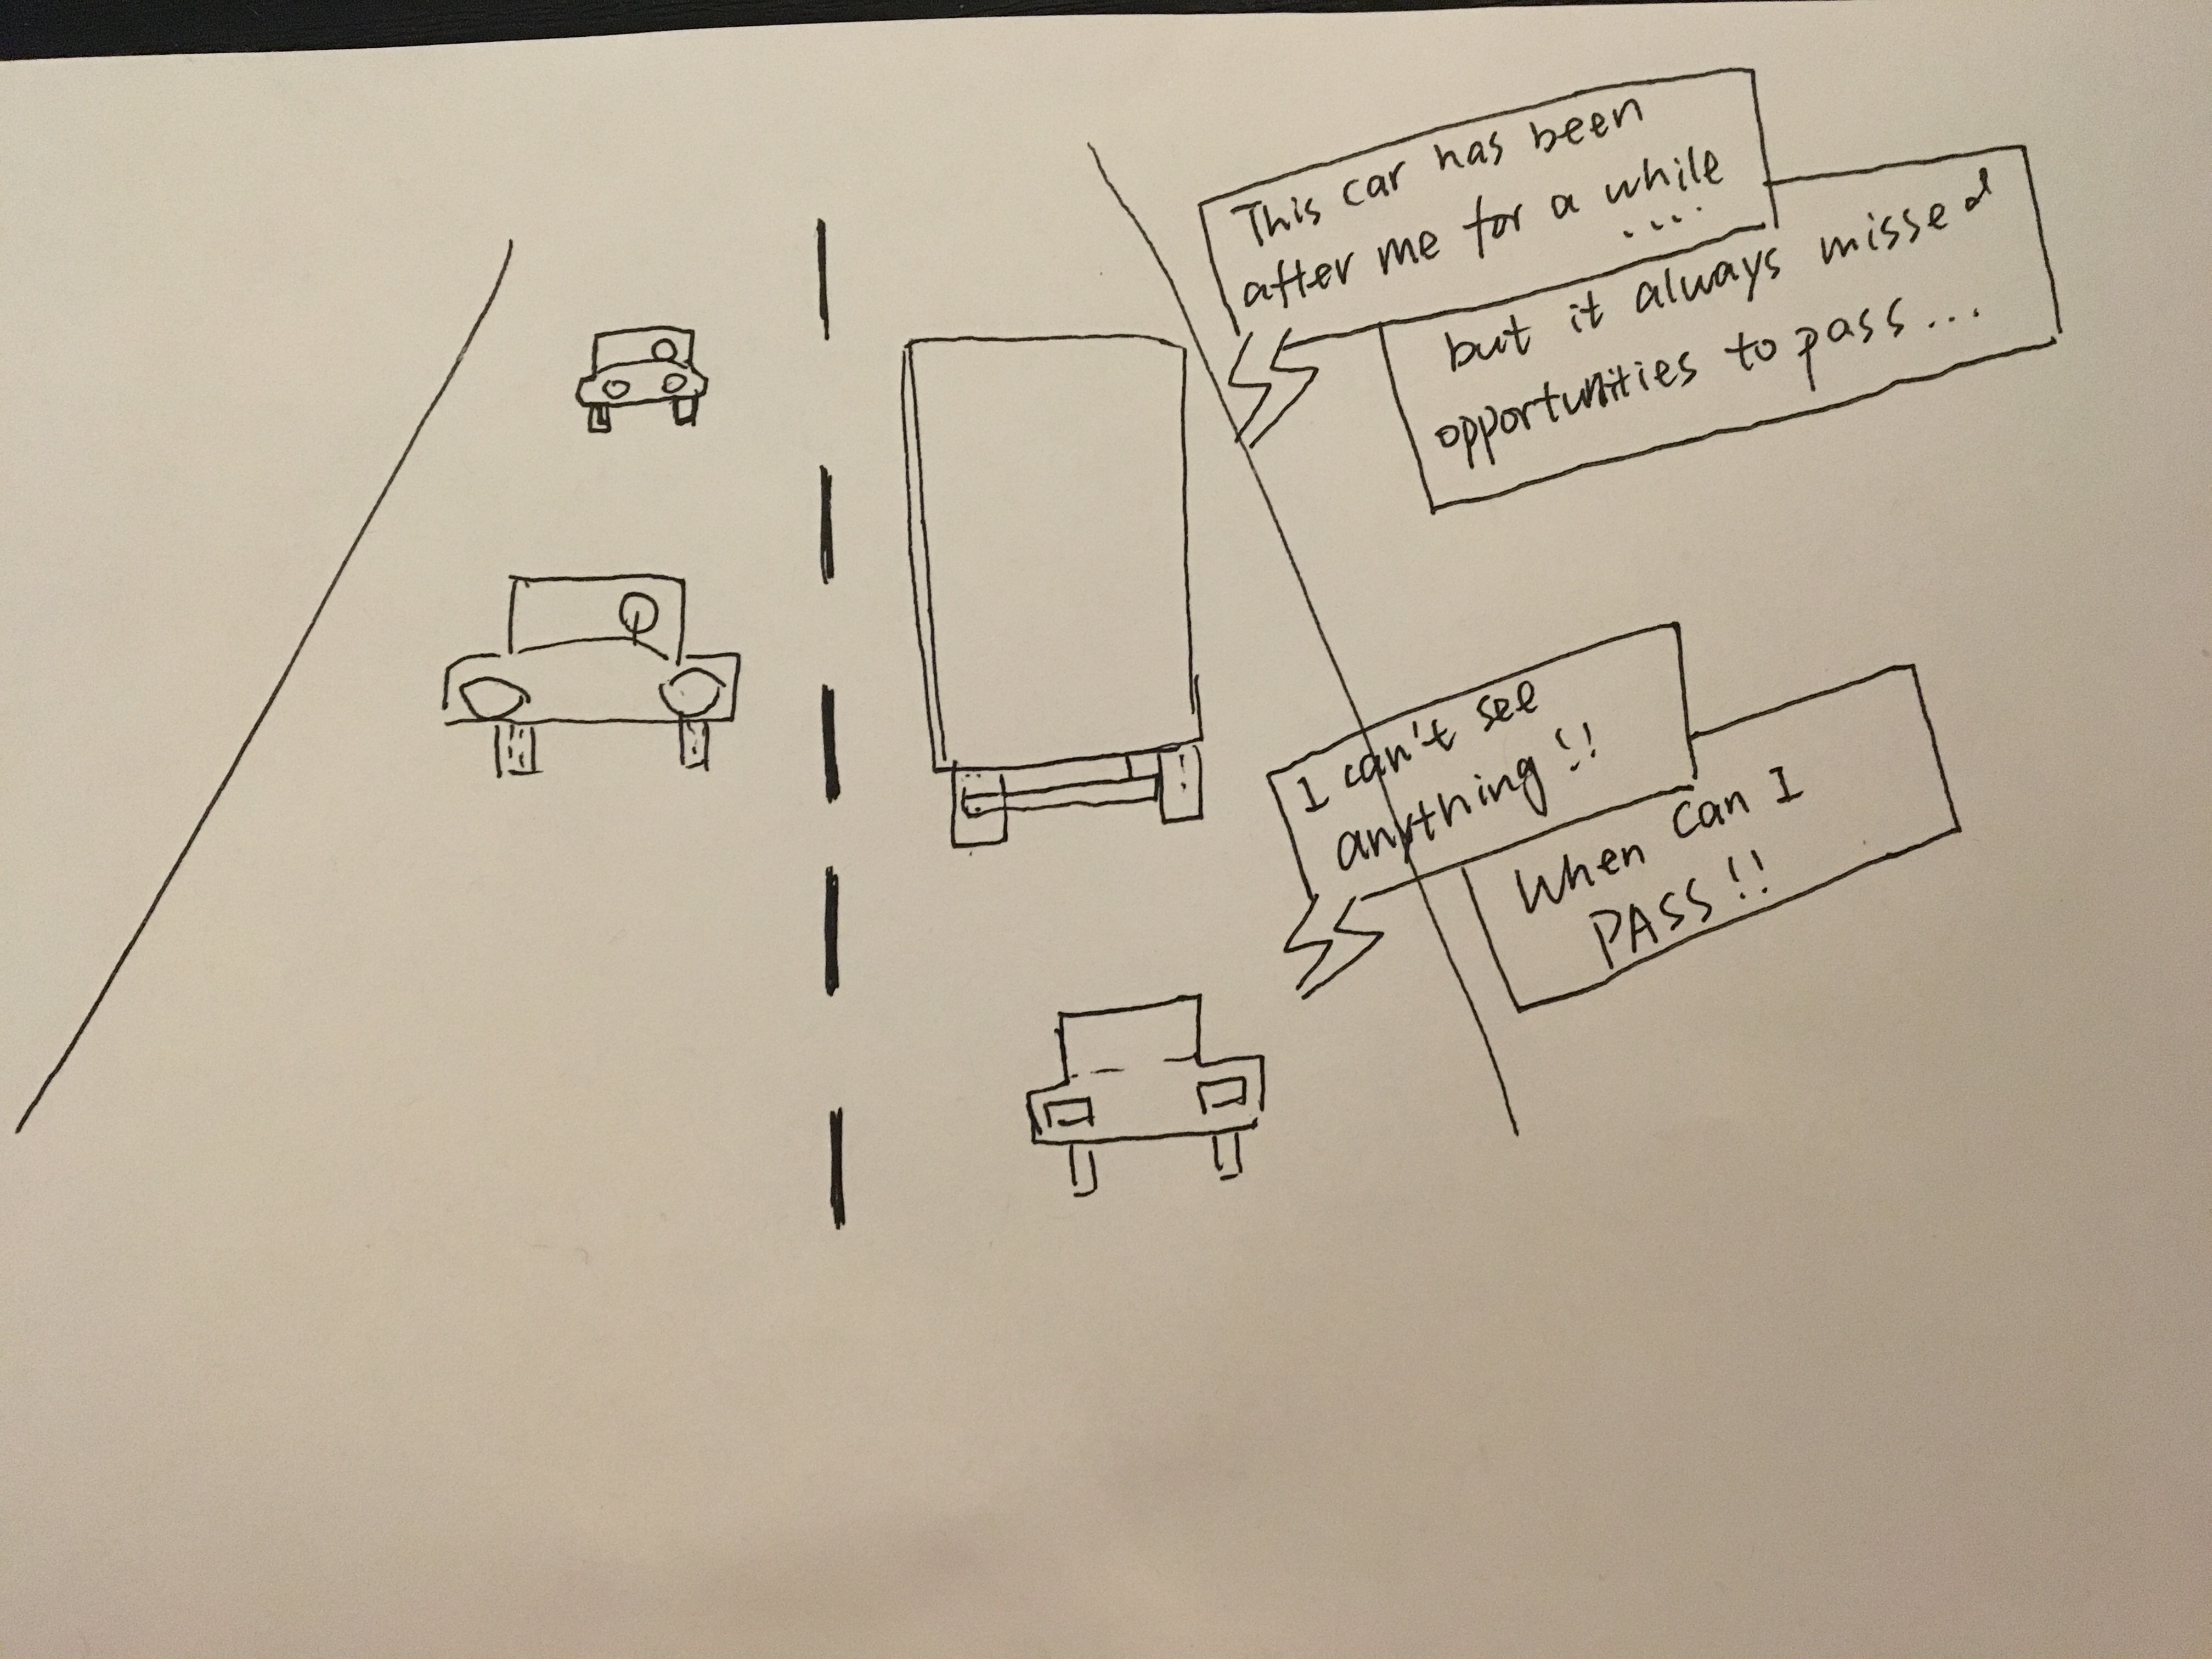 This car has been
after me for a while
....
but it always missed
opportunities to pass...
I can't see
anything!!
When can I
PASS!!